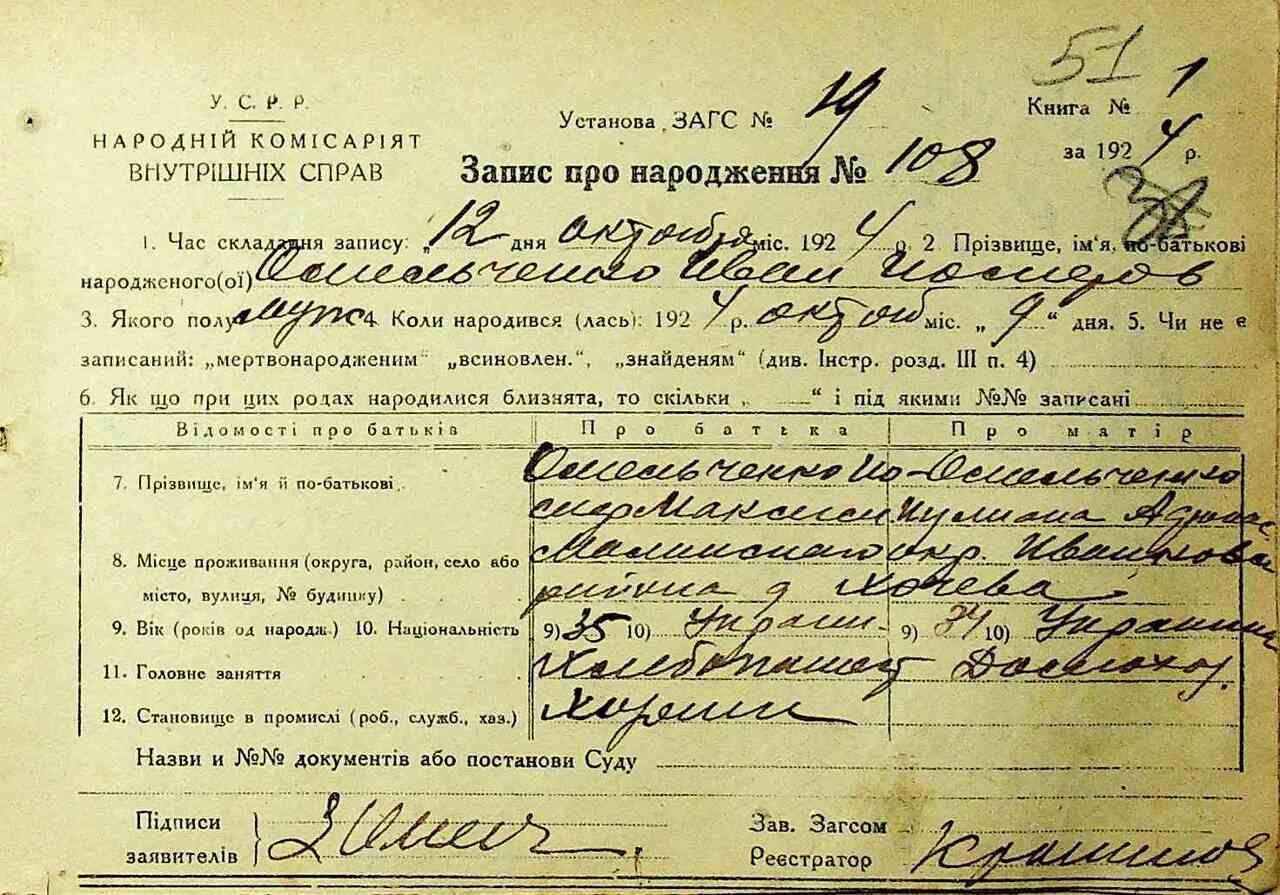 51
У. С. Р. Р.
НАРОДНІЙ КОМІСАРІЯТ
ВНУТРІШНІХ СПРАВ
Установа ЗАГС № 19
Книга № 1
за 1924 р.
Запис про народження № 108
1. Час складання запису: „12 дня октобря міс. 1924 р. 2 Прізвище, ім'я, по-батькові
народженого(ої) Омельченко Иван Иосифов
3. Якого полу муж 4. Коли народився (лась): 1924 р. октоб міс. „ 9 “ дня. 5. Чи не є
записаний: „мертвонародженим“ „всиновлен.“, „знайденям“ (див. Інстр. розд. III п. 4)
6. Як що при цих родах народилися близнята, то скільки „ “ і під якими №№ записані
Відомості про батьків Про батька Про матір
7. Прізвище, ім'я й по-батькові Омельченко Ио- Омельченко
сиф Максим Иулиана
8. Місце проживання (округа, район, село або Малинскаго окр. Иванков
місто, вулиця, № будинку) района д Хочева
9. Вік (років од народж.) 10. Національність 9) 35 10) Украин. 9) 34 10) Украинка
11. Головне заняття Хлебопашец Домохоз.
12. Становище в промислі (роб., служб., хаз.) Хозяин
Назви и №№ документів або постанови Суду
Підписи
заявителів } З Омел
Зав. Загсом
Реєстратор